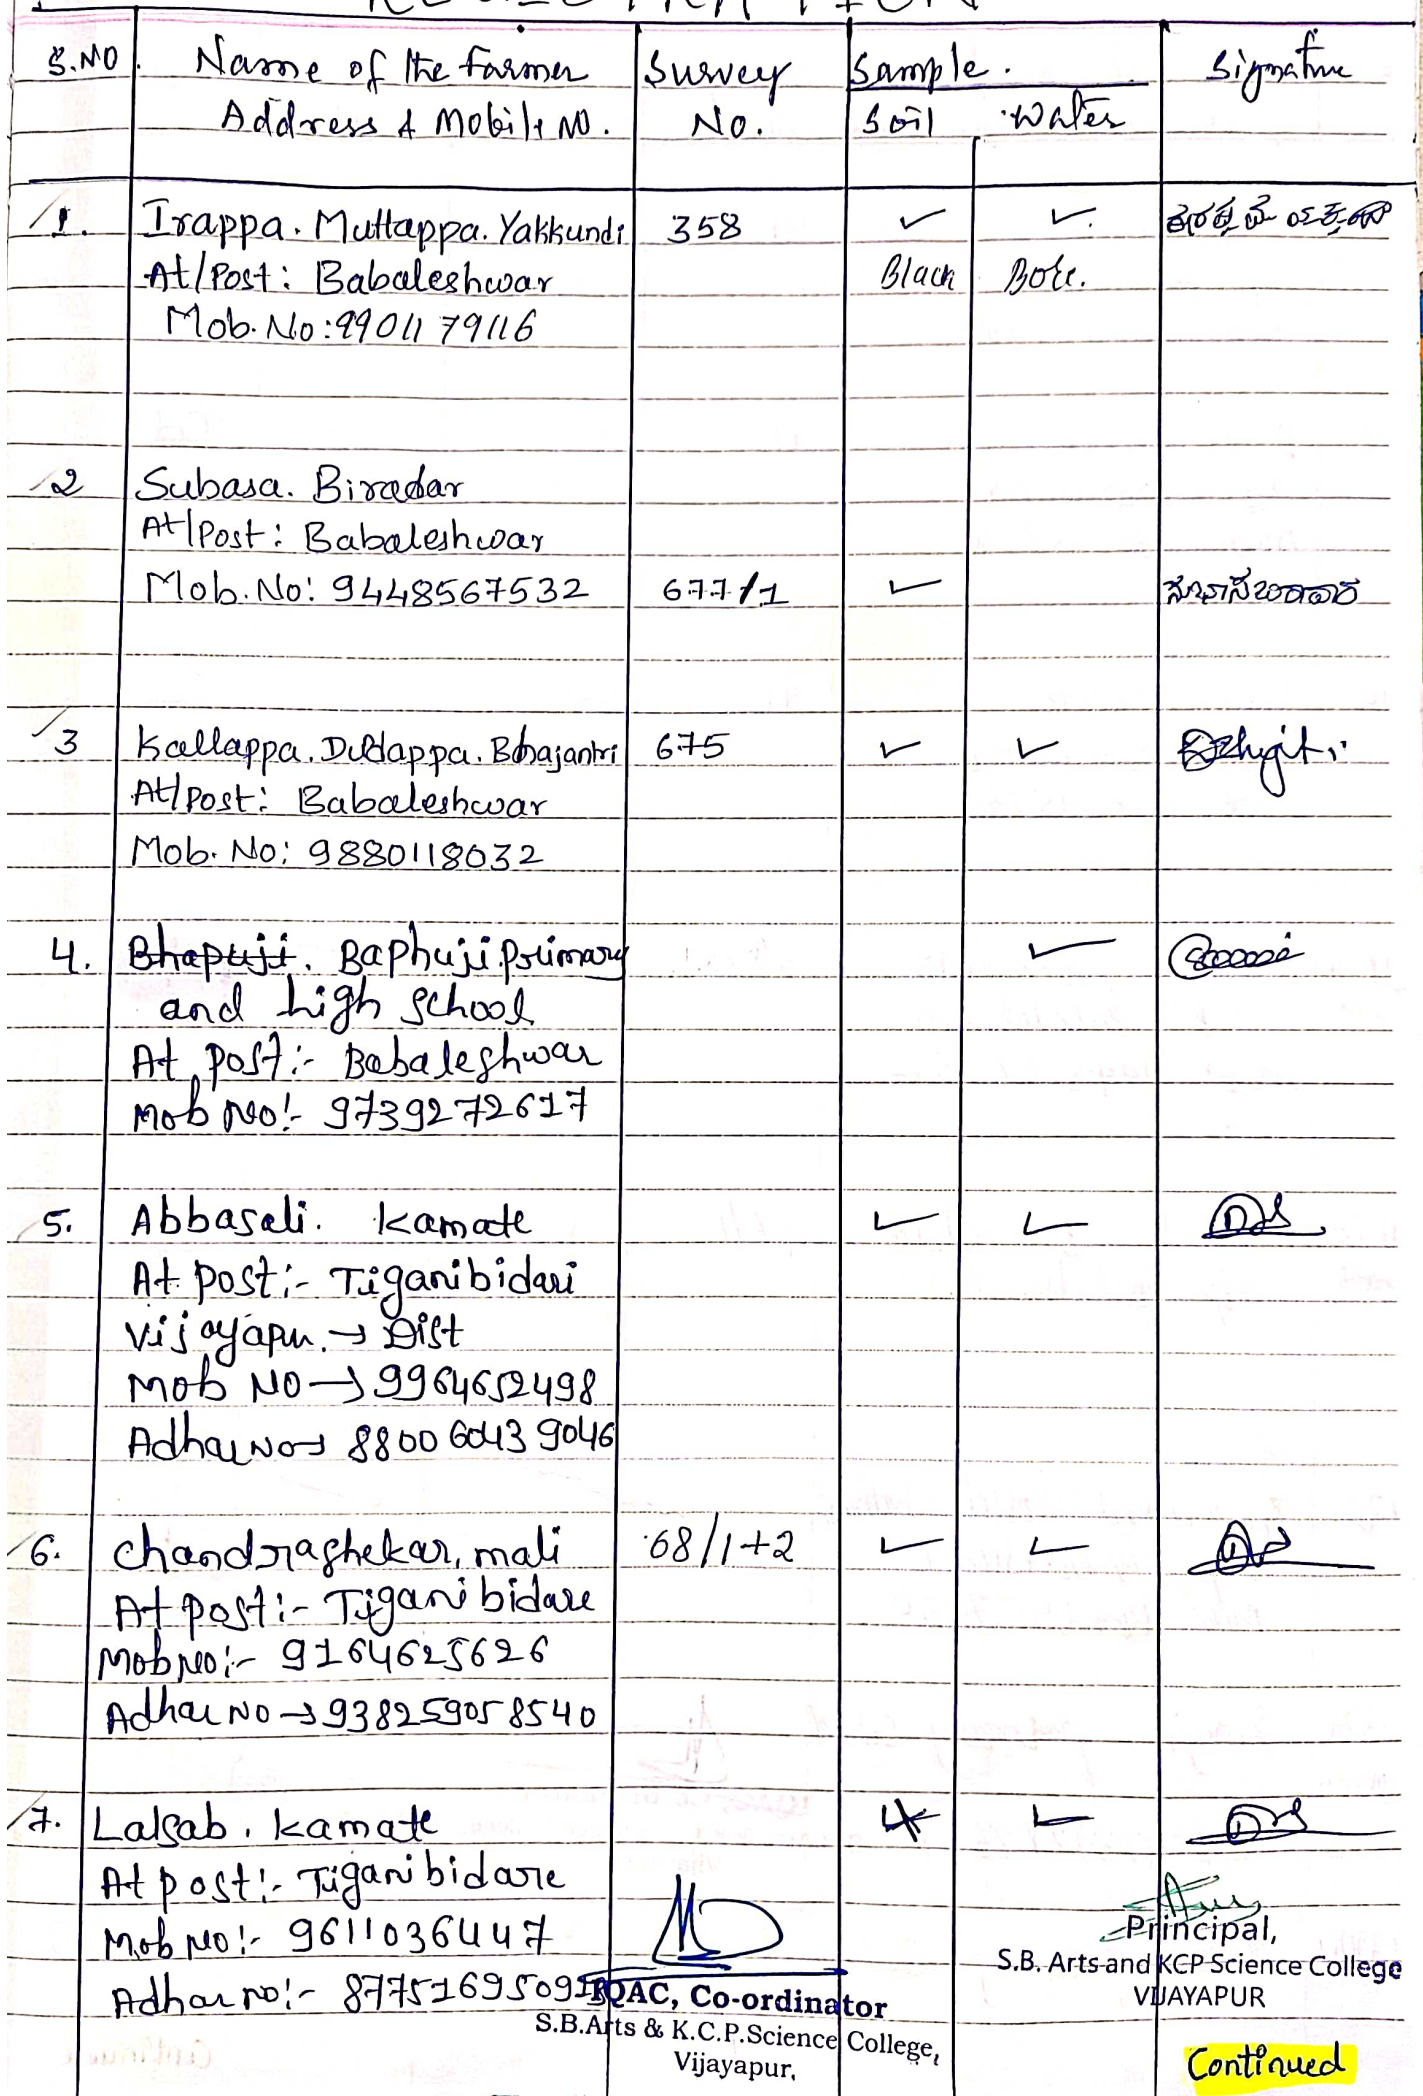 REGISTRATION
S.NO. Name of the Farmer Survey Sample. Signature
Address & Mobile NO. No. Soil Water
1. Irappa. Muttappa. Yakkundi 358 ✓ ✓
At/Post: Babaleshwar Black Bore.
Mob. No: 9901179116
2 Subasa. Biradar
At/Post: Babaleshwar
Mob. No: 9448567532 677/1 ✓
3 Kallappa. Duddappa. Bhajantri 675 ✓ ✓
At/Post: Babaleshwar
Mob. No: 9880118032
4. Bhapuji. Baphuji Primary ✓
and high school
At post:- Babaleshwar
Mob No:- 9739272617
5. Abbasali. Kamate ✓ ✓
At post:- Tiganibidari
Vijayapu. → Dist
Mob NO → 9964652498
Adhar No → 8800 6043 9046
6. Chandrashekar, mali 68/1+2 ✓ ✓
At post:- Tiganibidare
Mob No:- 9164625626
Adhar NO → 938259058540
7. Lalsab. Kamate ✓
At post:- Tiganibidare
Mob No:- 9611036447
Adhar no:-
IQAC, Co-ordinator
S.B.Arts & K.C.P.Science College,
Vijayapur,
Principal,
S.B. Arts and KCP Science College
VIJAYAPUR
Continued